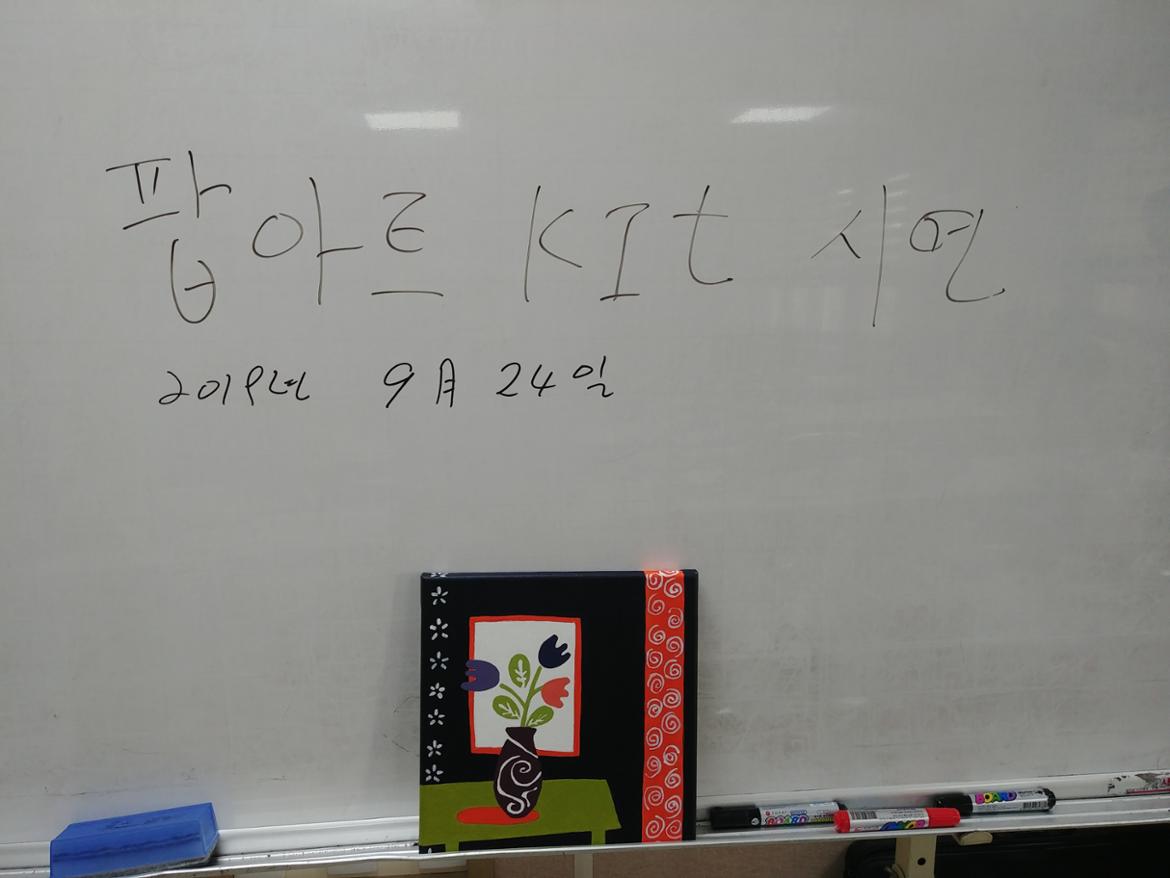 팝아트 KIt 시연
2019년 9月 24일
BOARD